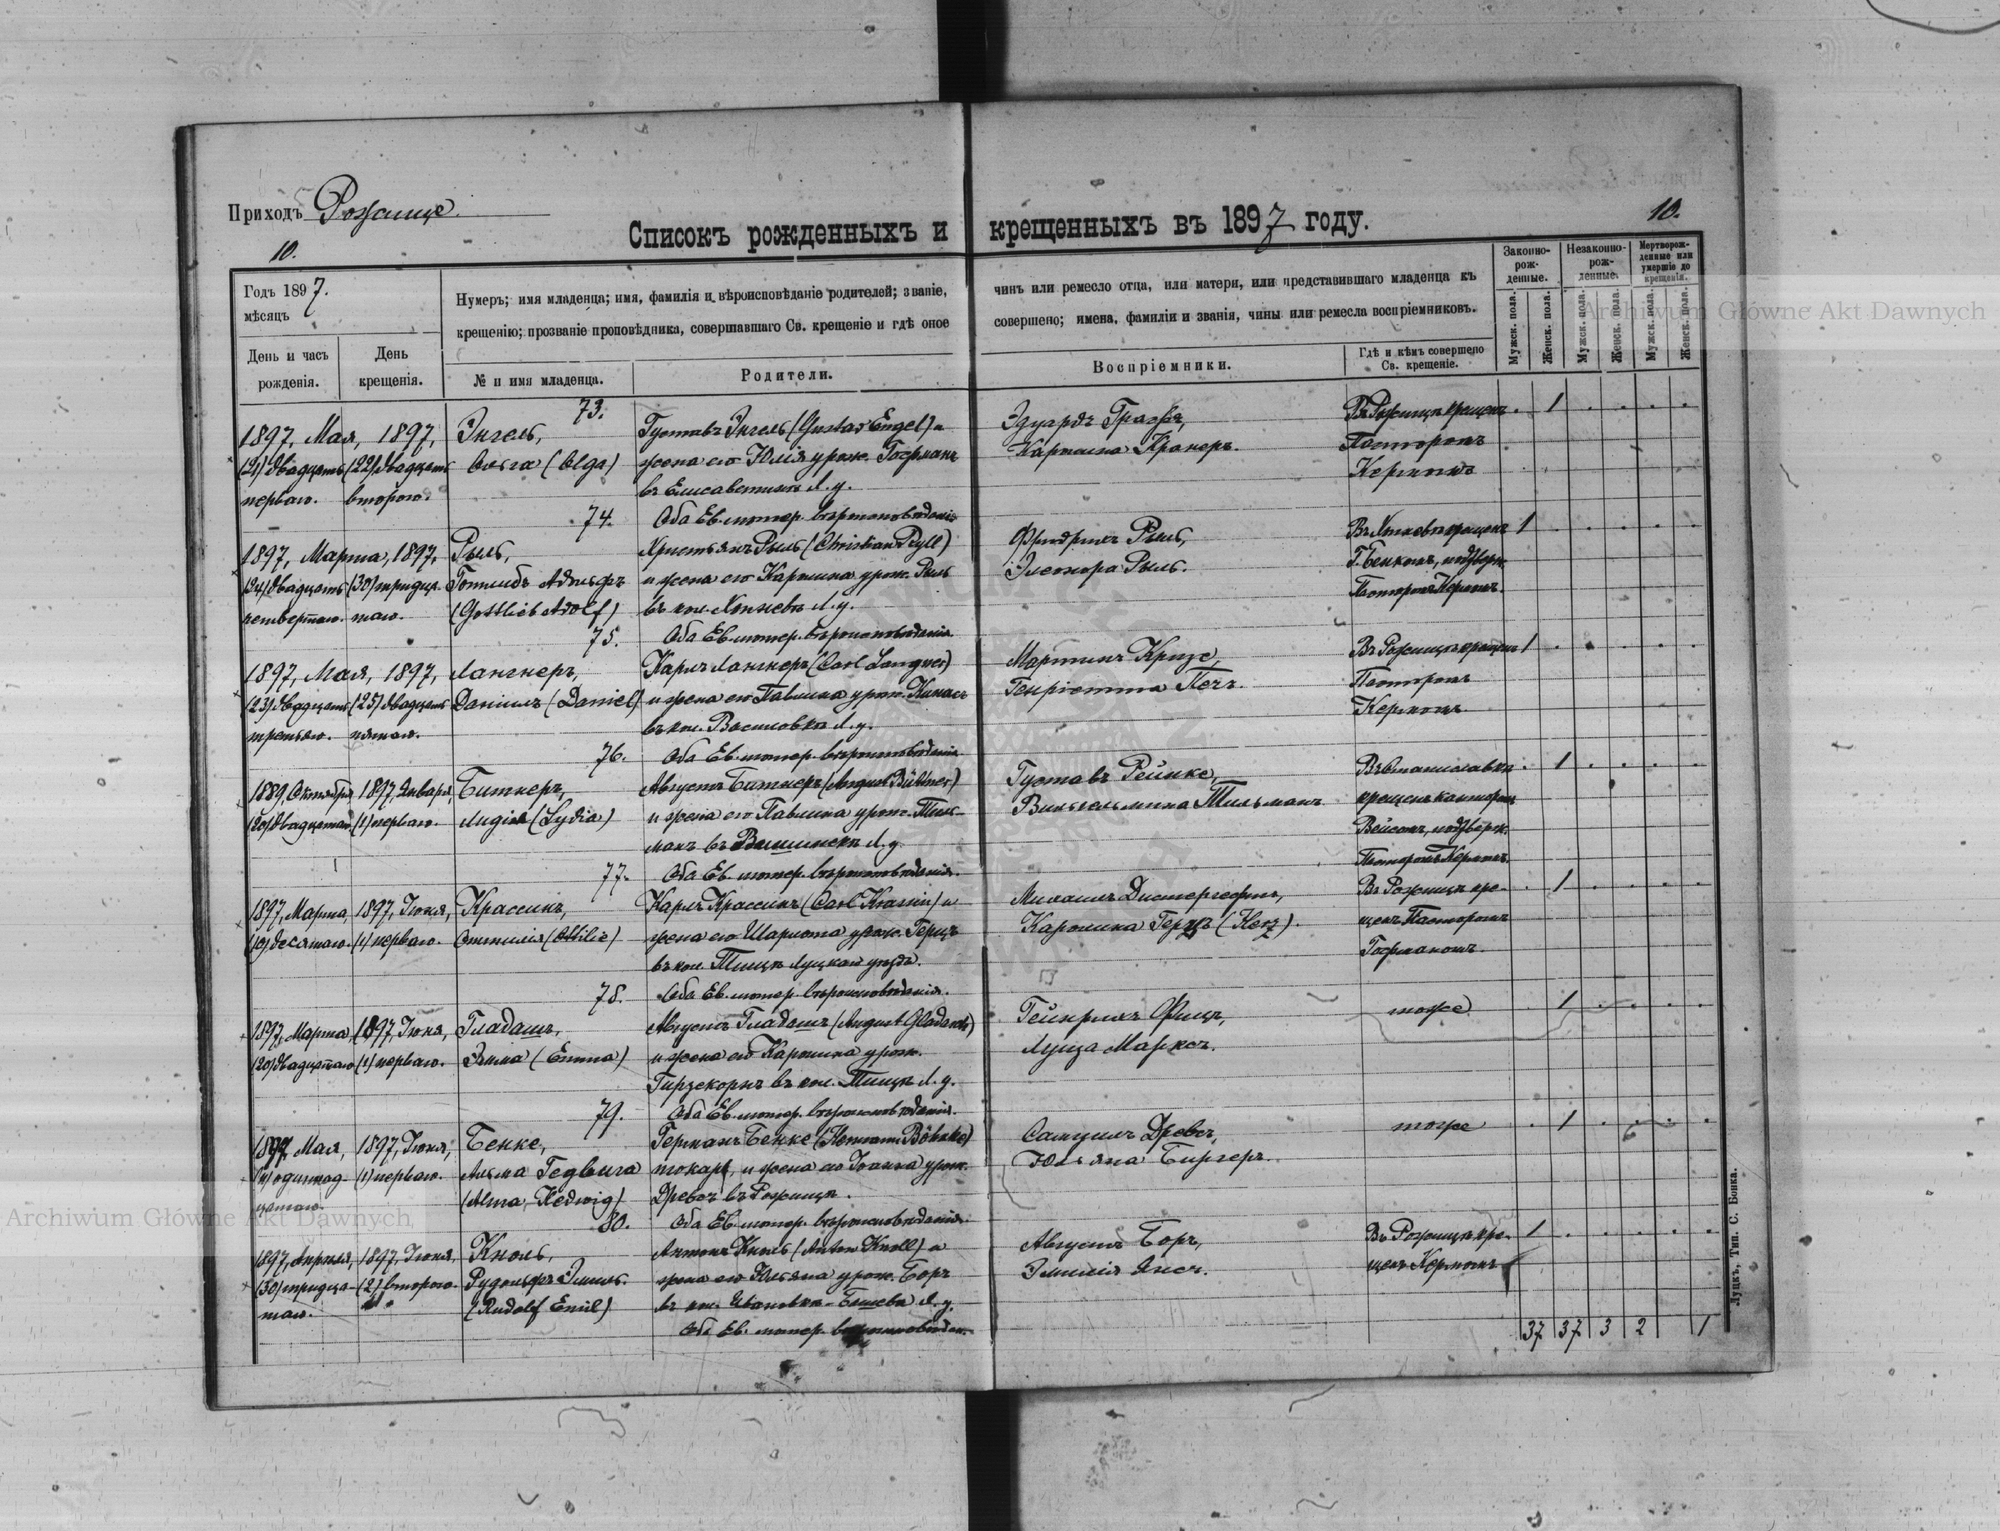 Приходъ Рожище.
Списокъ рожденныхъ и крещенныхъ въ 1897 году.
10.
10.
Годъ 1897.
мѣсяцъ
День и часъ рожденія.
День крещенія.
Нумеръ; имя младенца; имя, фамилія и вѣроисповѣданіе родителей; званіе,
чинъ или ремесло отца, или матери, или представившаго младенца къ
крещенію; прозваніе проповѣдника, совершавшаго Св. крещеніе и гдѣ оное
совершено; имена, фамиліи и званія, чины или ремесла воспріемниковъ.
№ и имя младенца.
Родители.
Воспріемники.
Гдѣ и кѣмъ совершено Св. крещеніе.
Законно-рож-денные.
Незаконно-рож-денные.
Мертворож-денные или умершіе до крещенія.
Мужск. пола.
Женск. пола.
Мужск. пола.
Женск. пола.
Мужск. пола.
Женск. пола.
73.
1897, Мая, 1897,
(21) двадцать (22) двадцать
перваго. второго.
Энгель,
Ольга (Olga)
Густавъ Энгель (Gustav Engel) и
жена его Юлія урож. Гофманъ
въ Елисаветинѣ Л. у.
Оба Ев. лютер. вѣроисповѣданія
Эдуардъ
Каролина Кронеръ.
Въ Рожищѣ крещенъ
Пасторомъ
Кермомъ
1
74.
1897, Марта, 1897,
(24) двадцать (30) тридца-
четвертаго. таго.
Рыль,
Готлибъ Адольфъ
(Gottlieb Adolf)
Христьянъ Рыль (Christian Ryll)
и жена его Каролина урож. Рыль
въ кол. Л. у.
Оба Ев. лютер. вѣроисповѣданія
Фридрихъ Рыль,
Элеонора Рыль.
крещенъ
Г. Бенкомъ, подтвержд.
Пасторомъ Кермомъ.
1
75.
1897, Мая, 1897,
(23) двадцать (25) двадцать
третьяго. пятаго.
Лангнеръ,
Даніилъ (Daniel)
Карлъ Лангнеръ (Carl Langner)
и жена его Павлина урож.
въ кол. Василовка Л. у.
Оба Ев. лютер. вѣроисповѣданія
Мартинъ Кризе,
Генріетта Печъ.
Въ Рожищѣ крещенъ
Пасторомъ
Кермомъ.
1
76.
1889, Октября, 1897, Января,
(20) двадцатаго (1) перваго.
Битнеръ,
Лидія (Lydia)
Августъ Битнеръ (August Büttner)
и жена его Павлина урож. Тиль-
манъ въ Л. у.
Оба Ев. лютер. вѣроисповѣданія.
Густавъ Рейнке,
Вильгельмина Тильманъ.
Въ Станиславкѣ
крещенъ канторомъ
подтвержд.
Пасторомъ Кермомъ.
1
77.
1897, Марта, 1897, Іюня,
(10) десятаго (1) перваго.
Крассинъ,
Оттилія (Ottilie)
Карлъ Крассинъ (Carl Krassin) и
жена его Шарлота урож. Герцъ
въ кол. Луцкаго уѣзда.
Оба Ев. лютер. вѣроисповѣданія.
Михаилъ
Каролина Герцъ (Herz).
Въ Рожищѣ кре-
щенъ Пасторомъ
Гофманомъ.
1
78.
1897, Марта, 1897, Іюня,
(20) двадцатаго (1) перваго.
Гладашъ,
Эмма (Emma)
Августъ Гладашъ (August Gladasch)
и жена его Каролина урож.
Гирзекорнъ въ кол. Л. у.
Оба Ев. лютер. вѣроисповѣданія.
Гейнрихъ Фицъ,
Луиза Марксъ.
тоже
1
79.
1897 Мая, 1897, Іюня,
(11) одиннад- (1) перваго.
цатаго.
Бенке,
Альма Гедвига
(Alma, Hedwig)
Германъ Бенке (Hermann Böhnke)
токарь, и жена его Іоанна урож.
Древсъ въ Рожищѣ.
Оба Ев. лютер. вѣроисповѣданія.
Самуилъ Древсъ,
Юльяна Биргеръ.
тоже
1
80.
1897, Апрѣля, 1897, Іюня,
(30) тридца- (2) второго.
таго.
Кноль,
Рудольфъ Эмиль.
(Rudolf Emil)
Антонъ Кноль (Anton Knoll) и
жена его Юльяна урож. Боръ
въ кол. Ивановка- Л. у.
Оба Ев. лютер. вѣроисповѣдан.
Августъ Боръ,
Эмилія Янсъ.
Въ Рожищѣ кре-
щенъ Кермомъ
1
37 37 3 2 1
Луцкъ, Тип. С. Бонка.
Archiwum Główne Akt Dawnych
Archiwum Główne Akt Dawnych